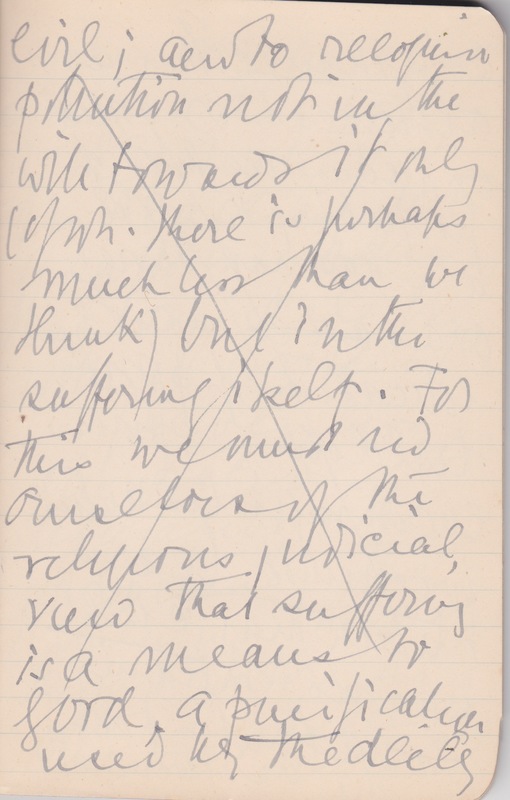 evil; and to recognise
pollution not in the
will towards it only
(of wh. there is perhaps
much less than we
think) but in the
suffering itself. For
this we must rid
ourselves of the
religious, judicial,
view that suffering
is a means to
good, a purification
used by the